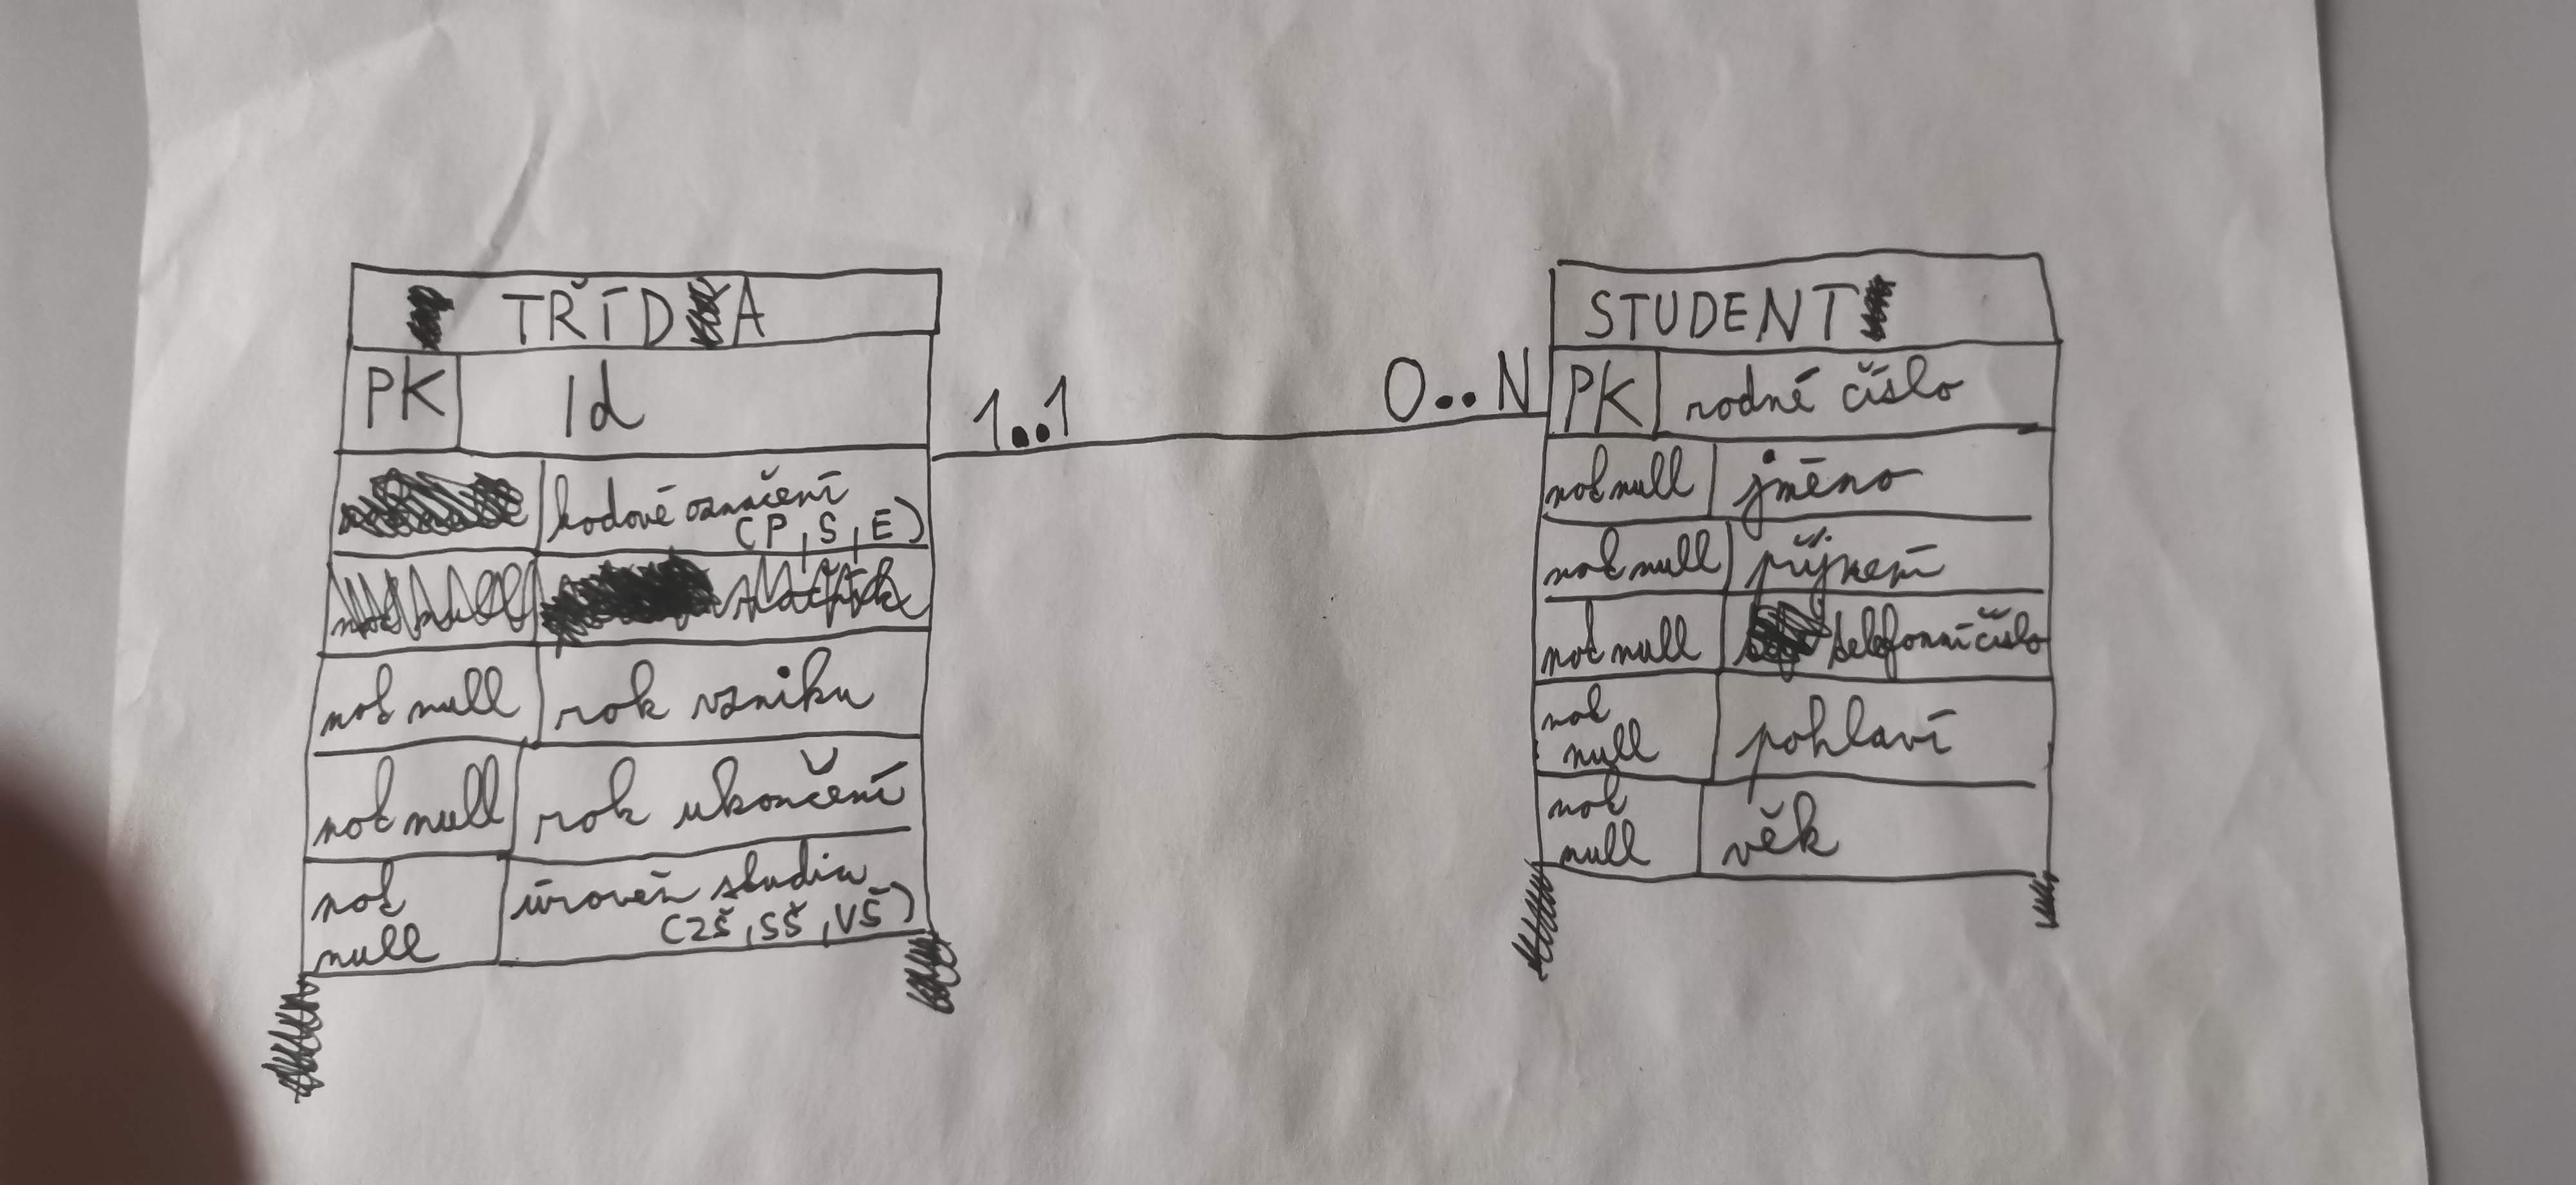 TŘÍDA
PK Id
kodové označení
(P,S,E)
not null rok vzniku
not null rok ukončení
not úroveň studia
null (ZŠ,SŠ,VŠ)
1..1
0..N
STUDENT
PK rodné číslo
not null jméno
not null příjmení
not null telefonní číslo
not
null pohlaví
not
null věk